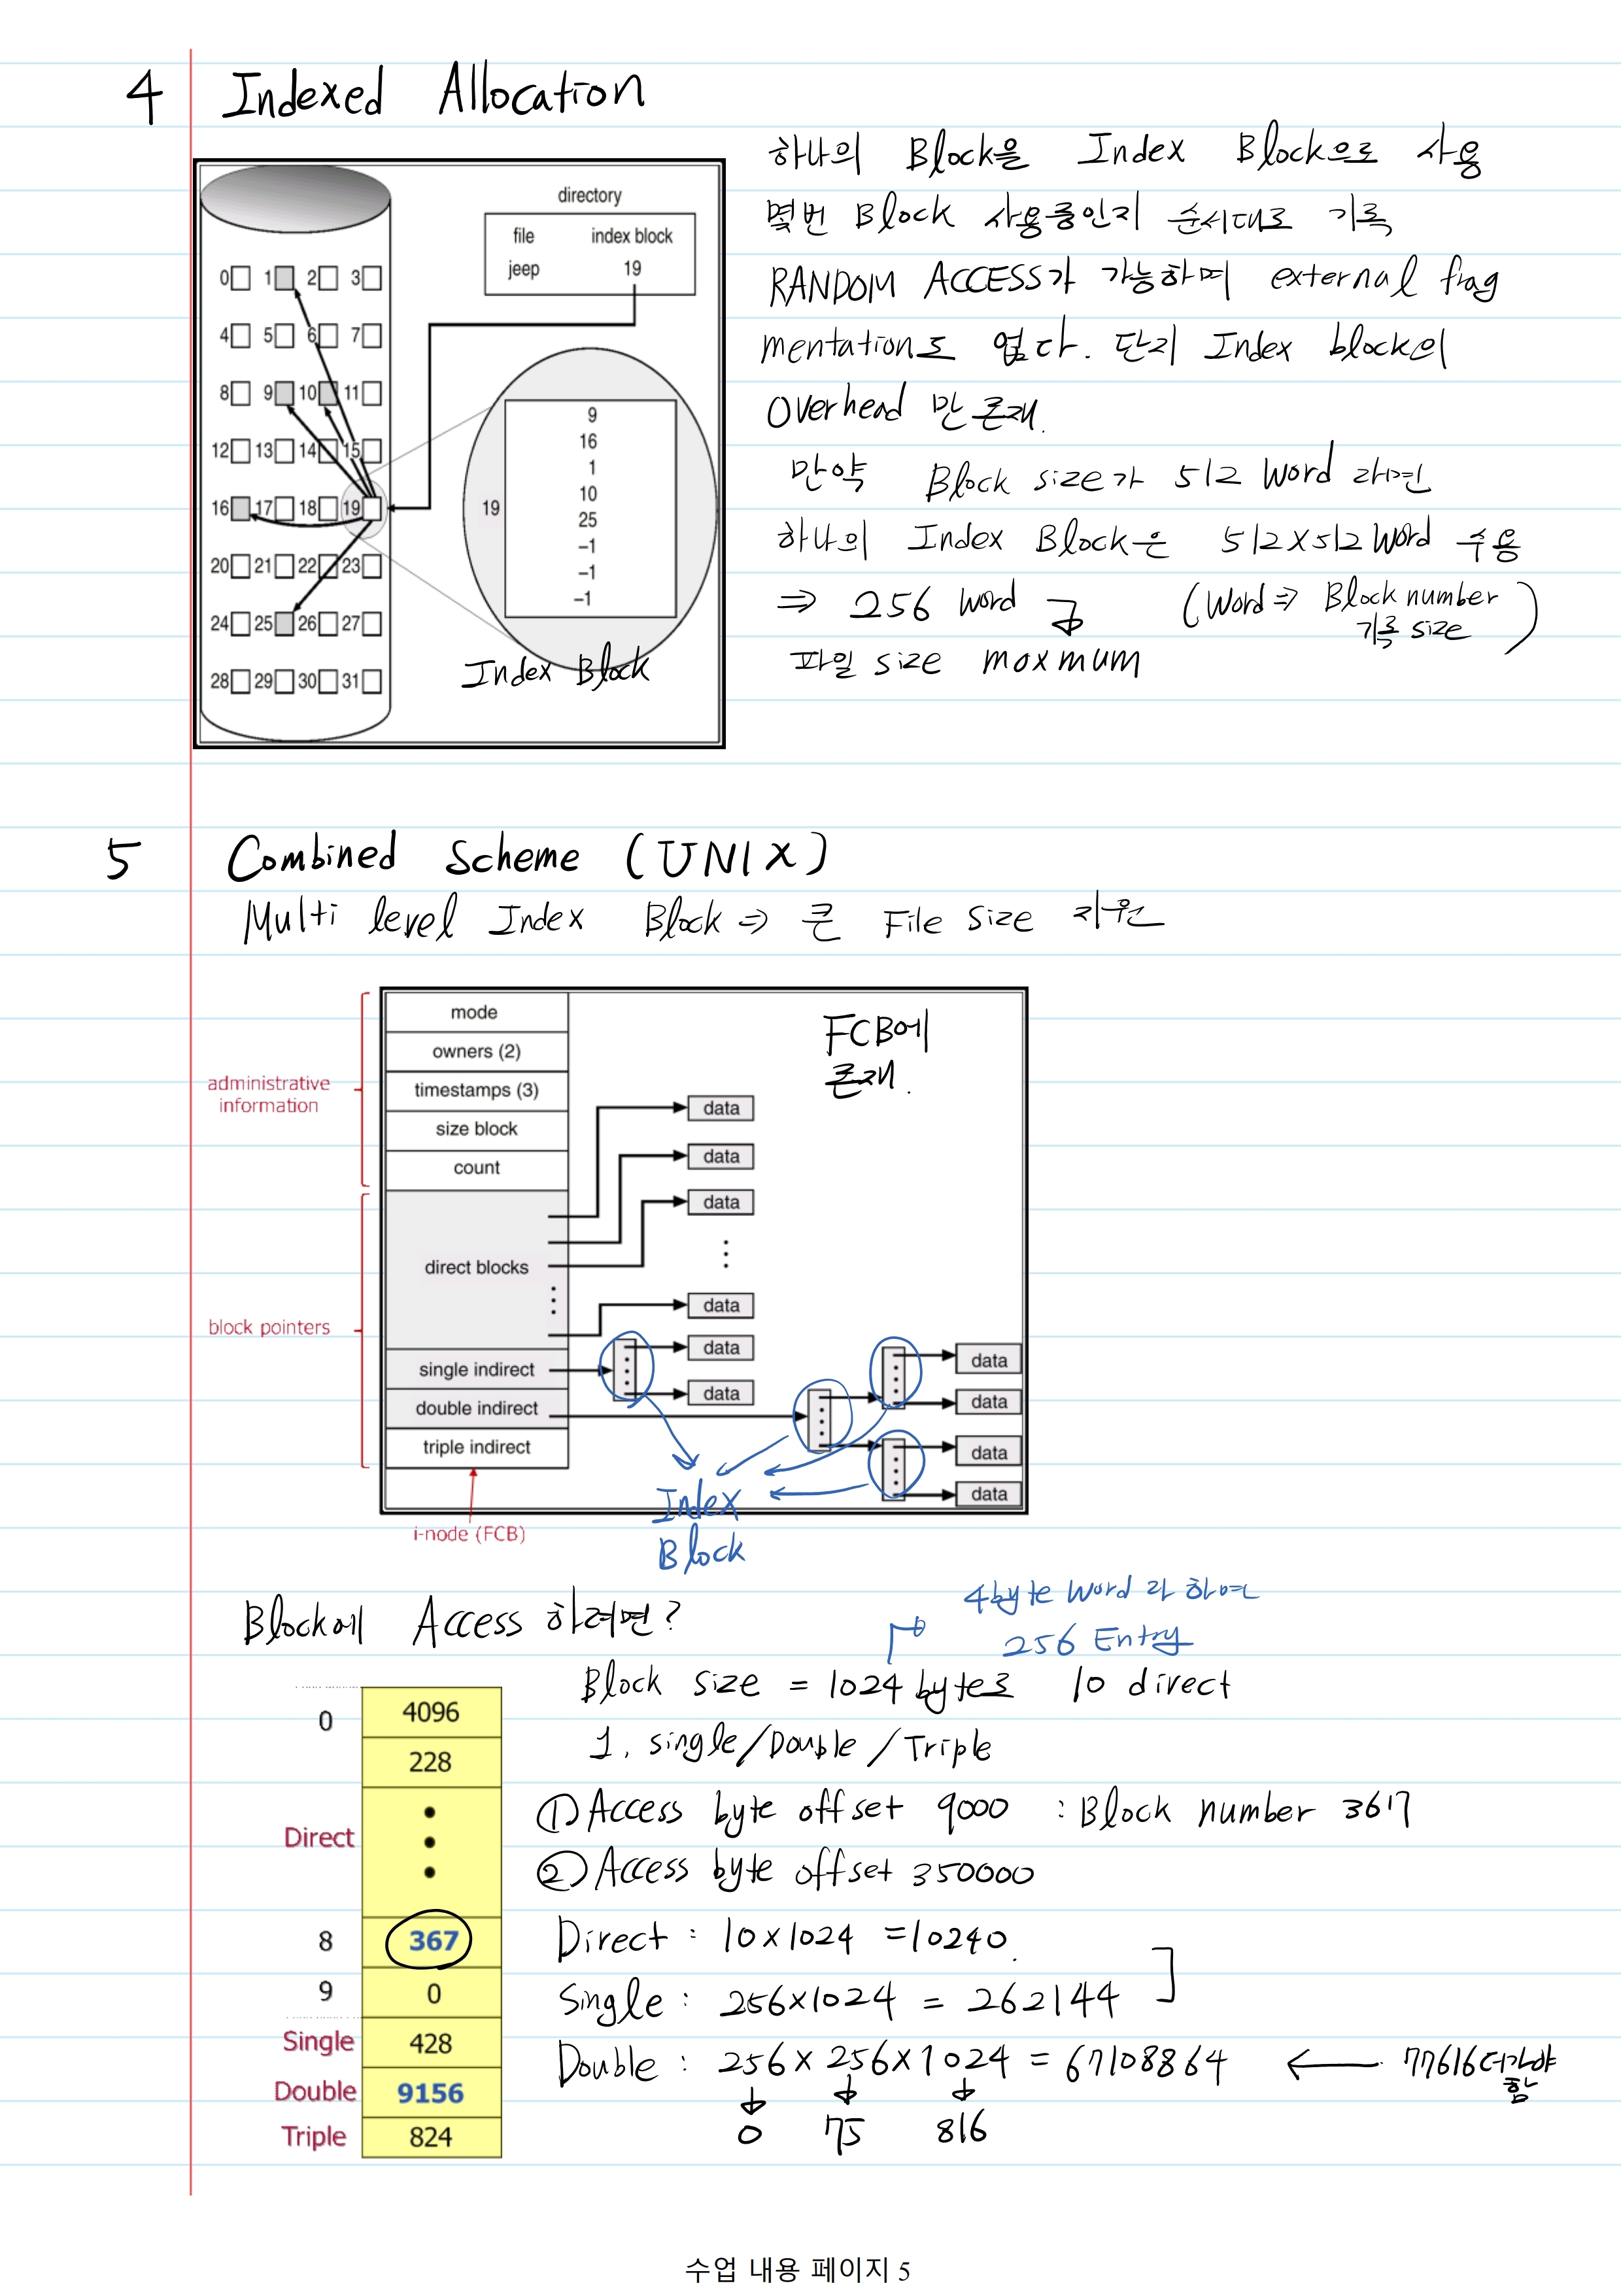 4 Indexed Allocation
directory
file index block
jeep 19
0 1 2 3
4 5 6 7
8 9 10 11
12 13 14 15
16 17 18 19
20 21 22 23
24 25 26 27
28 29 30 31
19
9
16
1
10
25
-1
-1
-1
Index Block
하나의 Block을 Index Block으로 사용
몇번 Block 사용중인지 순서대로 기록
RANDOM ACCESS가 가능하며 external frag
mentation도 없다. 단지 Index block의
Overhead 만 존재.
만약 Block size가 512 word 라면
하나의 Index Block은 512×512 word 수용
⇒ 256 word
(Word ⇒ Block number
기록 size)
파일 size moxmum
5 Combined Scheme (UNIX)
Multi level Index Block ⇒ 큰 File Size 지원
administrative
information
block pointers
mode
owners (2)
timestamps (3)
size block
count
direct blocks
single indirect
double indirect
triple indirect
i-node (FCB)
FCB에
존재.
data
data
data
data
data
data
data
data
data
data
Index
Block
Block에 Access 하려면?
4byte word 라 하면
256 Entry
Block size = 1024 byte로 10 direct
1. single/Double/Triple
① Access byte offset 9000 : Block number 3617
② Access byte offset 350000
Direct : 10×1024 = 10240.
Single : 256×1024 = 262144
Double : 256×256×1024 = 67108864 ← 77616 더가야
함
0 75 816
0 4096
228
Direct
8 367
9 0
Single 428
Double 9156
Triple 824
수업 내용 페이지 5